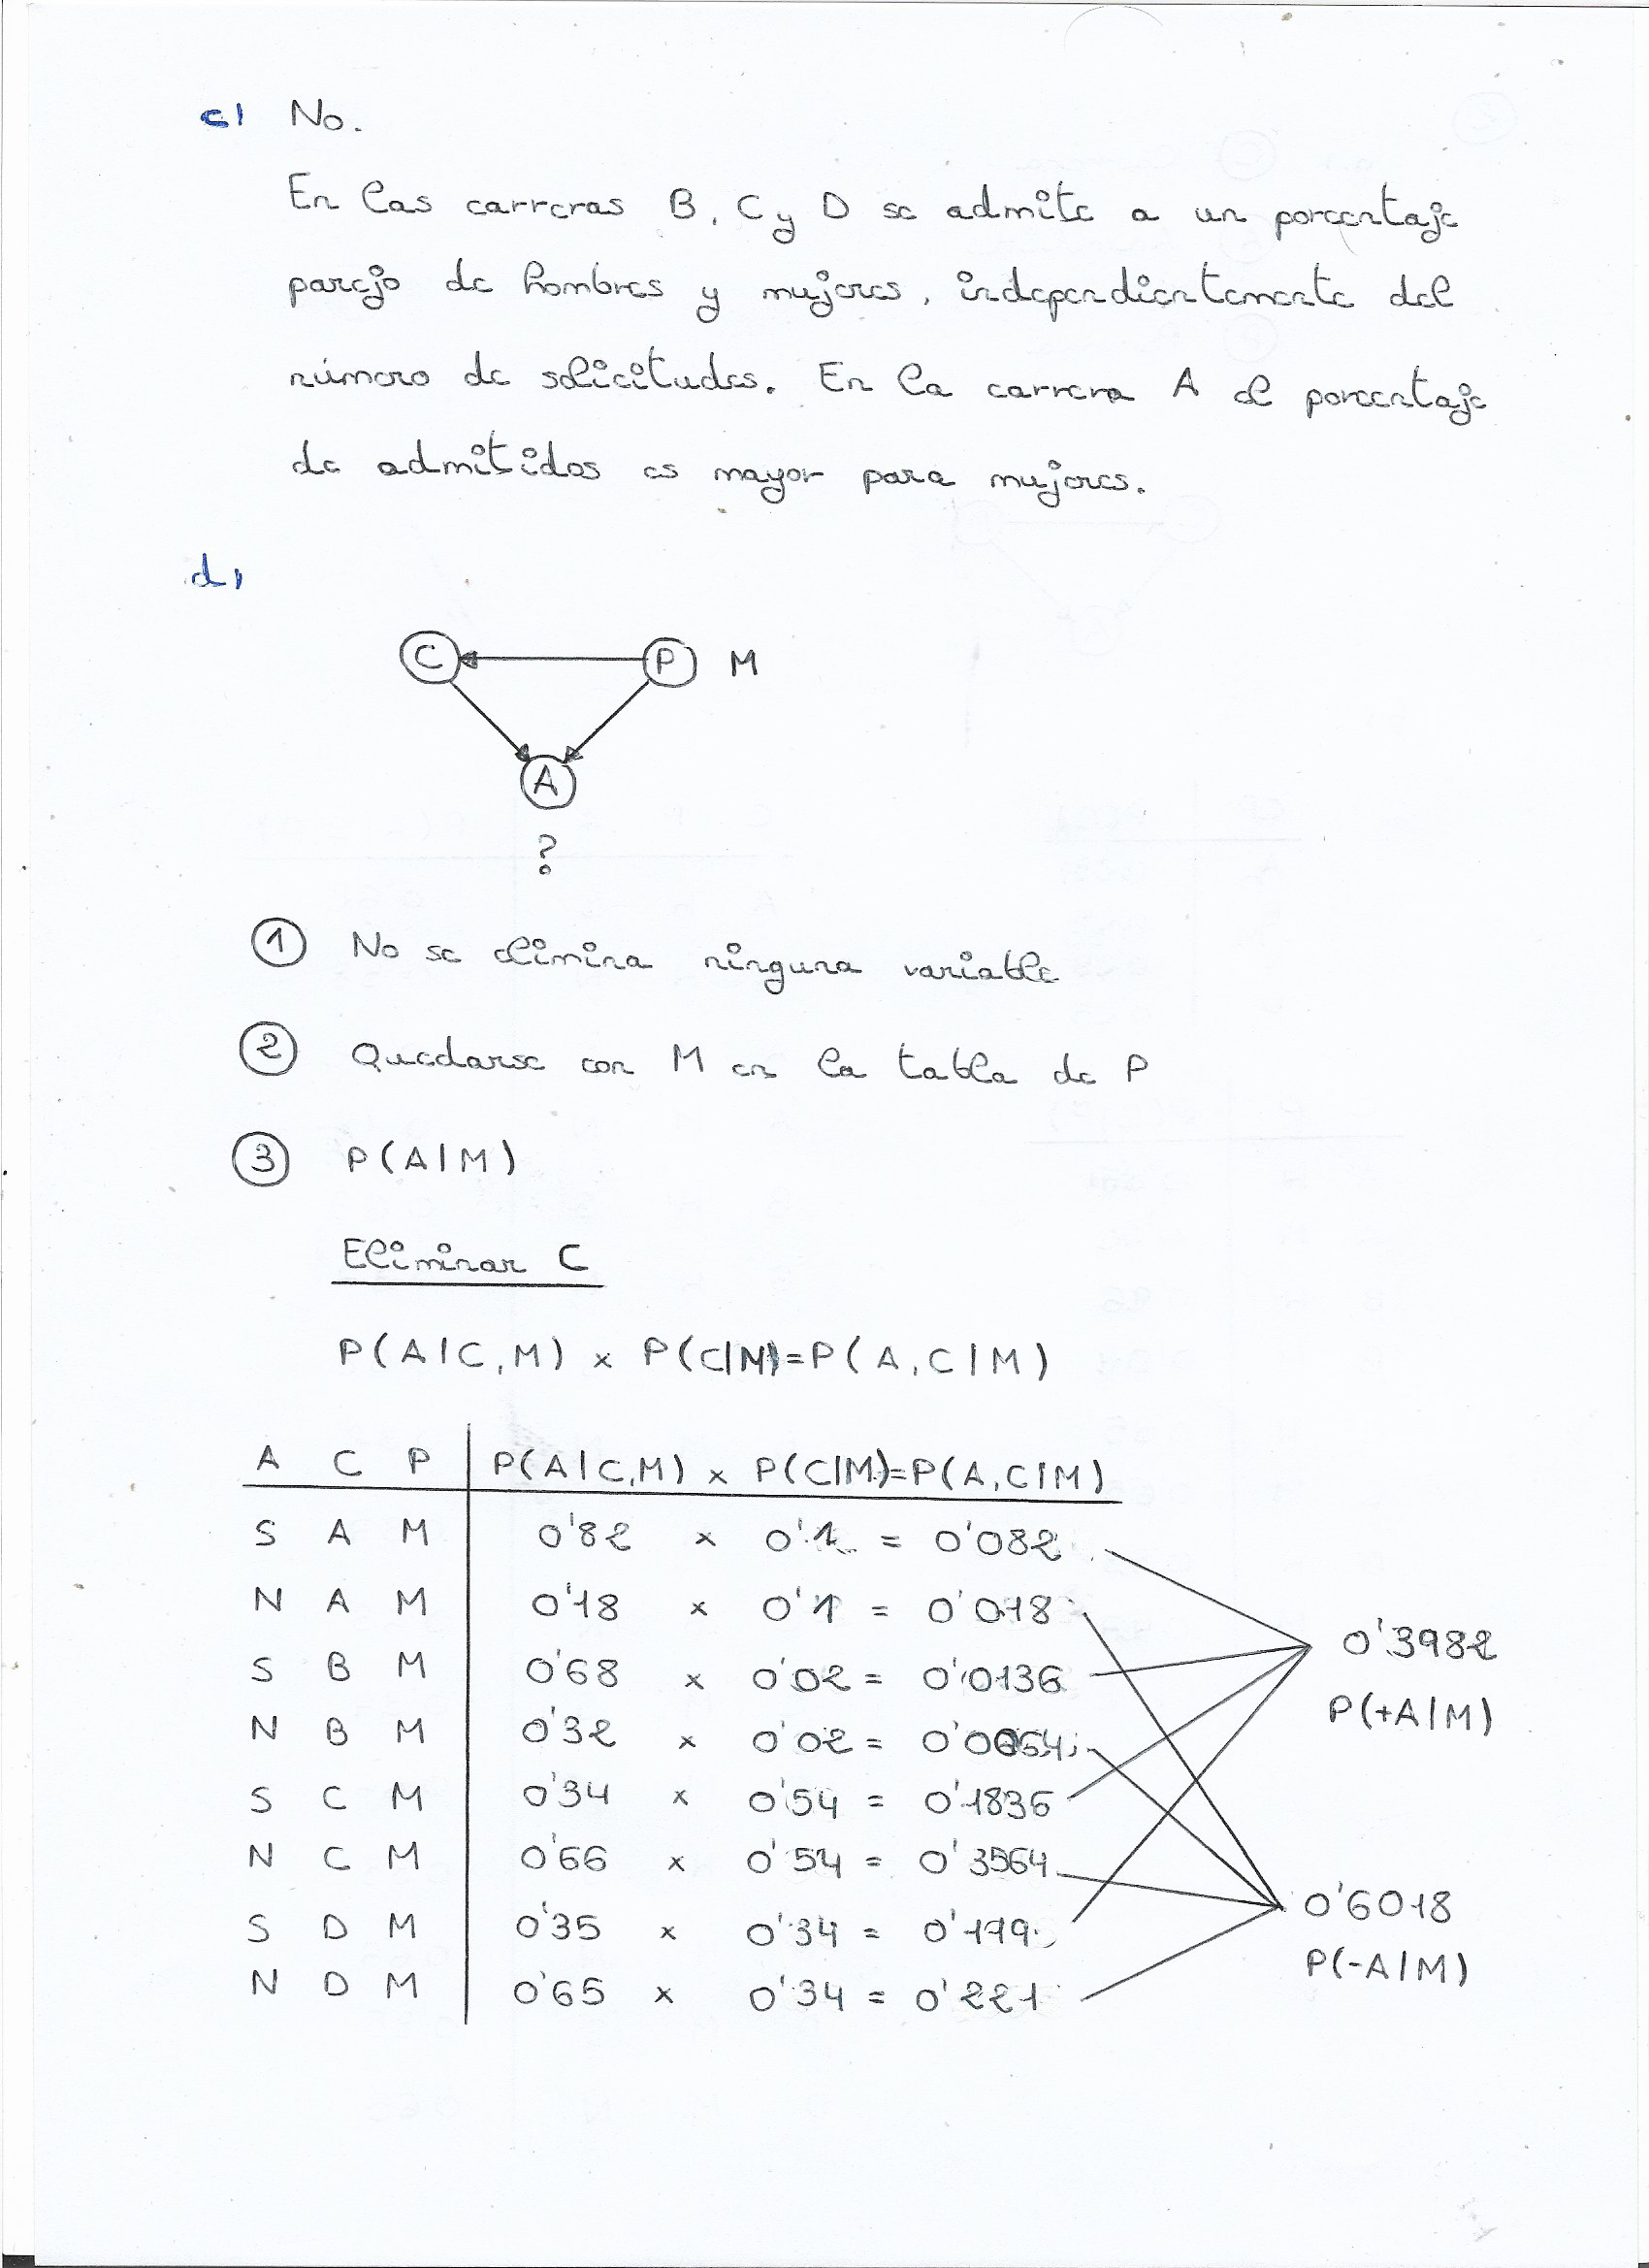 c) No.
En las carreras B, C y D se admite a un porcentaje
parejo de hombres y mujeres, independientemente del
número de solicitudes. En la carrera A el porcentaje
de admitidos es mayor para mujeres.
d)
C P M
A
?
1 No se elimina ninguna variable
2 Quedarse con M en la tabla de P
3 P(A|M)
Eliminar C
P(A|C,M) x P(C|M)=P(A,C|M)
A C P P(A|C,M) x P(C|M)=P(A,C|M)
S A M 0'82 x 0'1 = 0'082
N A M 0'18 x 0'1 = 0'018
S B M 0'68 x 0'02 = 0'0136
N B M 0'32 x 0'02 = 0'0064
S C M 0'34 x 0'54 = 0'1836
N C M 0'66 x 0'54 = 0'3564
S D M 0'35 x 0'34 = 0'119
N D M 0'65 x 0'34 = 0'221
0'3982
P(+A|M)
0'6018
P(-A|M)